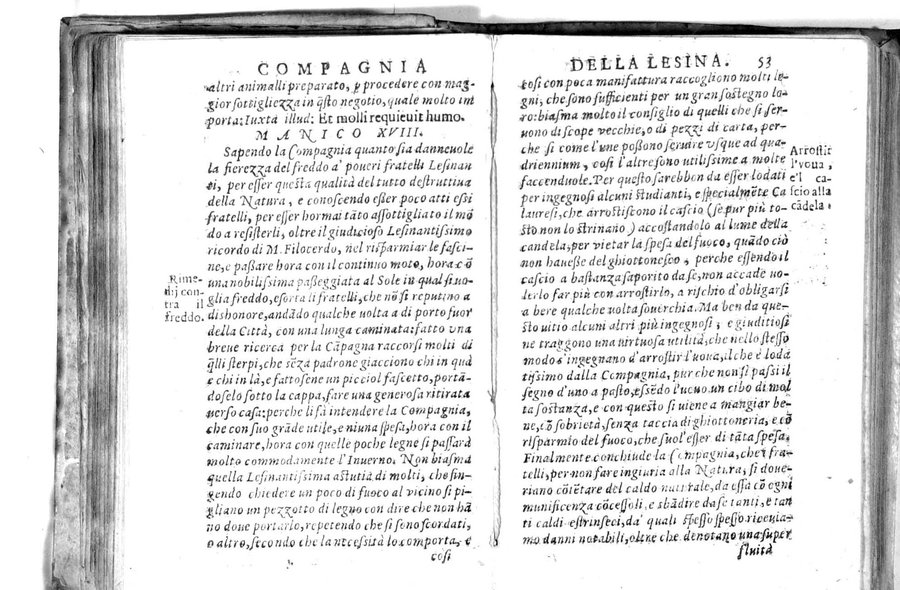 COMPAGNIA
altri animalli preparato, ꝑ procedere con mag-
gior sottigliezza in q̃sto negotio, quale molto im
porta: Iuxta illud: Et molli requieuit humo.
MANICO XVIII.
Sapendo la Compagnia quanto sia danneuole
la fierezza del freddo a' poueri fratelli Lesinan
ti, per esser questa qualità del tutto destruttiua
della Natura, e conoscendo esser poco atti essi
fratelli, per esser hormai tãto assottigliato il mo
do a resisterli, oltre il giudicioso Lesinantissimo
ricordo di M. Filocerdo, nel risparmiar le fasci-
ne, e passare hora con il continuo moto, hora cõ
una nobilissima passeggiata al Sole in qual si uo-
glia freddo, esorta li fratelli, che nõ si reputino a
dishonore, andãdo qualche uolta a di porto fuor
della Città, con una lunga caminata: fatto una
breue ricerca per la Cãpagna raccorsi molti di
q̃lli sterpi, che sẽza padrone giacciono chi in quà
e chi in là, e fattosene un picciol fascetto, portã-
doselo sotto la cappa, fare una generosa ritirata
uerso casa: perche li fà intendere la Compagnia,
che con suo grãde utile, e niuna spesa, hora con il
caminare, hora con quelle poche legne si passarà
molto commodamente l'Inuerno. Non biasma
quella Lesinantissima astutia di molti, che fin-
gendo chiedere un poco di fuoco al vicino si pi-
gliano un pezzotto di legno con dire che non hã
no doue portarlo, repetendo che si sono scordati,
o altro, secondo che la necessità lo comporta, e
cosi
Rime-
dij con-
tra il
freddo.
DELLA LESINA. 53
cosi con poca manifattura raccogliono molti le-
gni, che sono sufficienti per un gran sostegno lo-
ro: biasma molto il consiglio di quelli che si ser-
uono di scope vecchie, o di pezzi di carta, per-
che si come l'une possono seruire usque ad qua-
driennium, cosi l'altre sono utilissime a molte
faccenduole. Per questo sarebben da esser lodati
per ingegnosi alcuni studianti, e specialmẽte Ca
lauresi, che arrostiscono il cascio (se pur più to-
sto non lo strinano) accostandolo al lume della
candela, per vietar la spesa del fuoco, quãdo ciò
non hauesse del ghiottonesco, perche essendo il
cascio a bastanza saporito da se, non accade uo-
lerlo far più con arrostirlo, a rischio d'obligarsi
a bere qualche uolta souerchia. Ma ben da que-
sto uitio alcuni altri più ingegnosi, e giuditiosi
ne traggono una virtuosa utilità, che nello stesso
modo s'ingegnano d'arrostir l'uoua, il che è lodã
tissimo dalla Compagnia, pur che non si passi il
segno d'uno a pasto, essẽdo l'uouo un cibo di mol
ta sostanza, e con questo si uiene a mangiar be-
ne, cõ sobrietà, senza taccia di ghiottoneria, e cõ
risparmio del fuoco, che suol'esser di tãta spesa.
Finalmente conchiude la Compagnia, che i fra-
telli, per non fare ingiuria alla Natura, si doue-
riano cõtẽtare del caldo naturale, da essa cõ ogni
munificenza cõcessoli, e sbãdire da se tanti, e tan
ti caldi estrinseci, da' quali spesso spesso riceuia-
mo danni notabili, oltre che denotano una super
fluità
Arrostir
l'voua,
e'l ca-
scio alla
cãdela.